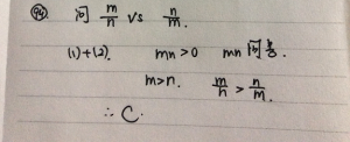 94 问 m/n vs n/m.
(1)+(2). mn>0 mn同号.
m>n. m/n > n/m.
∴ C.